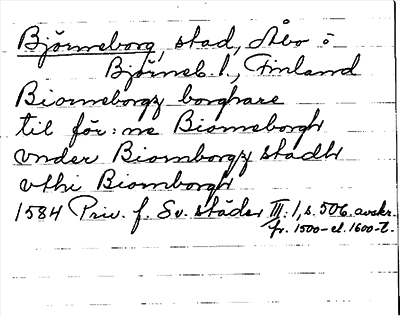 Björneborg, stad, Åbo o
Björneb. l., Finland
Biorneborgz borghare
til för:ne Biorneborgh
vnder Biornborgz stadh
vthi Biornborgh
1584 Priv. f. Sv. städer III:1, s. 506. avskr.
fr. 1500- el. 1600-t.